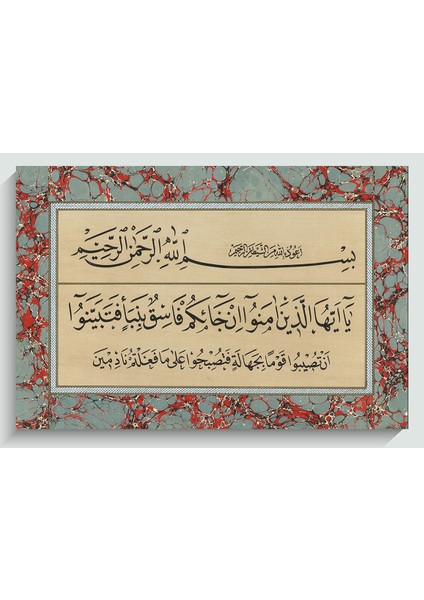 اعوذ بالله من الشيطان الرجيم
بسم الله الرحمن الرحيم
يا ايها الذين امنوا ان جائكم فاسق بنبأ فتبينوا
ان تصيبوا قوما بجهالة فتصبحوا على ما فعلتم نادمين